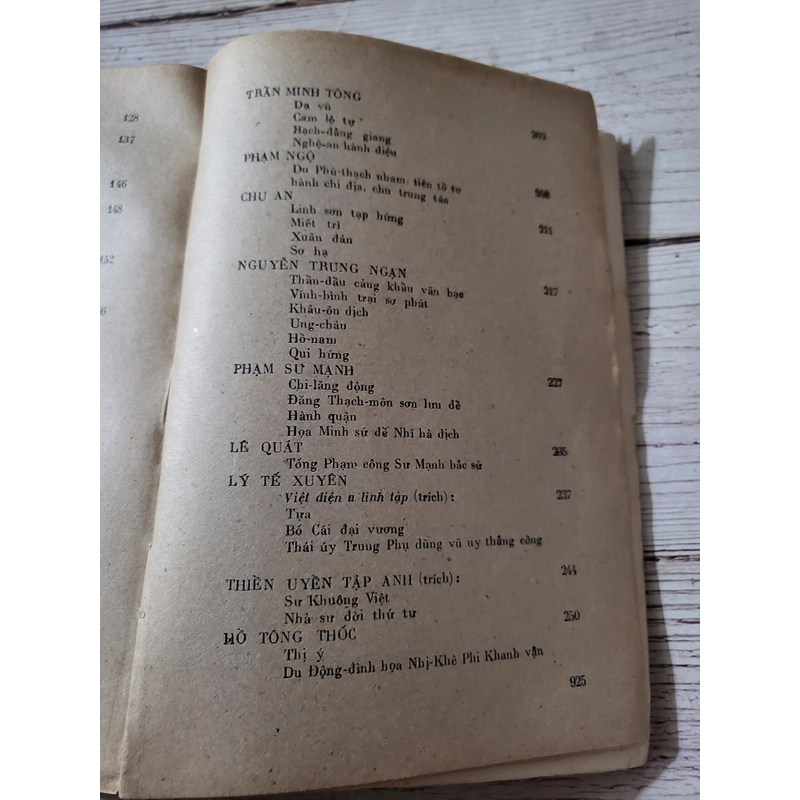 128
137
146
148
152
TRẦN MINH TÔNG
Dạ vũ
Cam lộ tự
Bạch-đằng giang 203
Nghệ-an hành điệu
PHẠM NGỘ
Du Phù-thạch nham, tiên tổ tu
hành chi địa, chu trung tác 208
CHU AN
Linh sơn tạp hứng
Miết trì 211
Xuân đán
Sơ hạ
NGUYỄN TRUNG NGẠN
Thần-đầu cảng khẩu vãn bạc 217
Vĩnh-bình trại sơ phát
Khâu-ôn dịch
Ung-châu
Hồ-nam
Qui hứng
PHẠM SƯ MẠNH
Chi-lăng động 227
Đăng Thạch-môn sơn lưu đề
Hành quận
Họa Minh sứ đề Nhĩ hà dịch
LÊ QUÁT
Tống Phạm công Sư Mạnh bắc sứ 235
LÝ TẾ XUYÊN
Việt điện u linh tập (trích): 237
Tựa
Bố Cái đại vương
Thái úy Trung Phụ dũng vũ uy thắng công
THIỀN UYỂN TẬP ANH (trích): 244
Sư Khuông Việt
Nhà sư đời thứ tư
HỒ TÔNG THỐC 250
Thị ý
Du Động-đình họa Nhị-Khê Phi Khanh vận
925